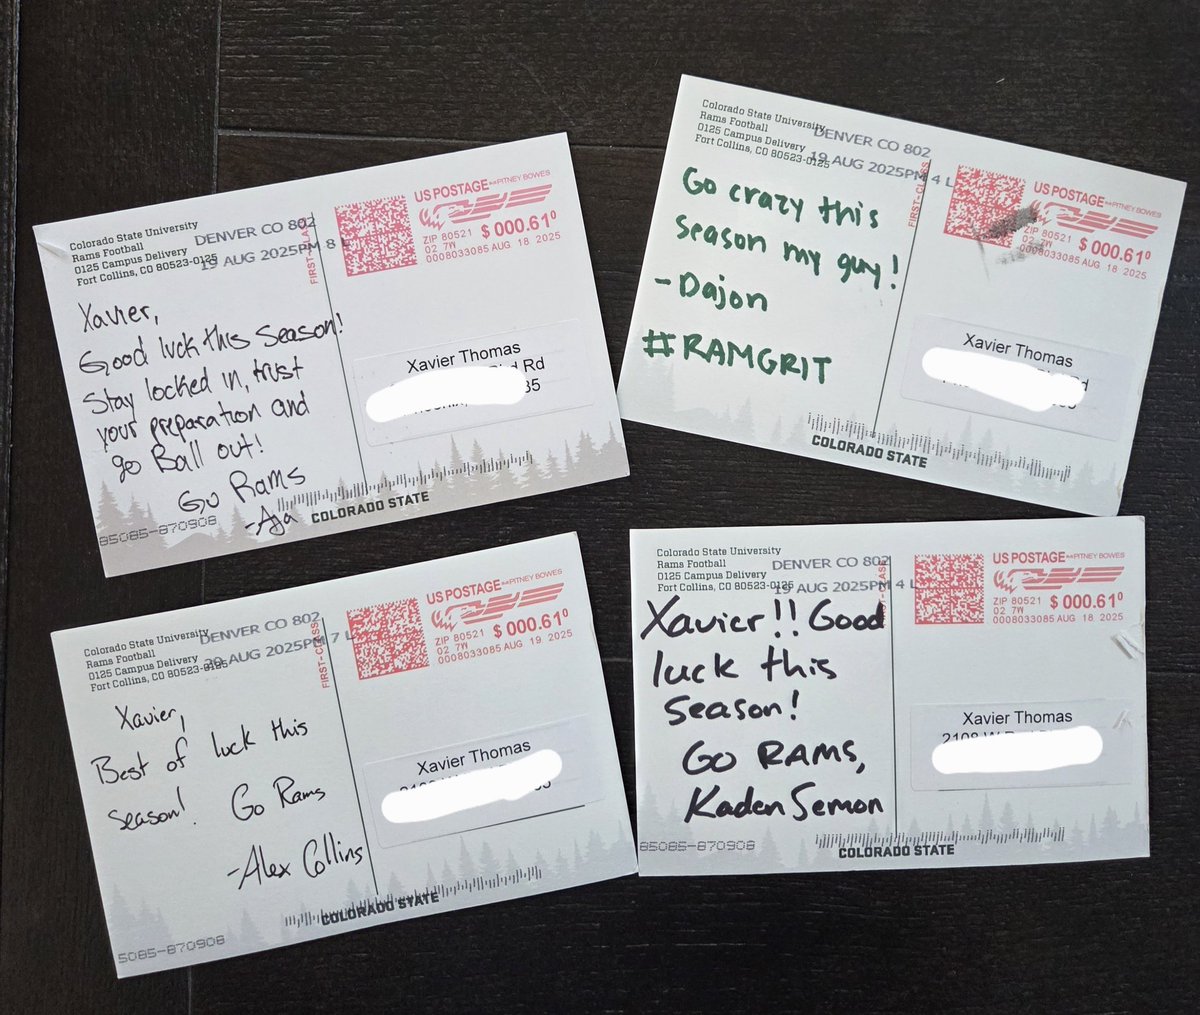 Colorado State University
Rams Football
0125 Campus Delivery
Fort Collins, CO 80523-0125
DENVER CO 802
19 AUG 2025PM 8 L
FIRST-CLASS
US POSTAGE PITNEY BOWES
ZIP 80521 $ 000.61⁰
02 7W
0008033085 AUG 18 2025
Xavier,
Good luck this season!
Stay locked in, trust
your preparation and
go Ball out!
Go Rams
-Aja
Xavier Thomas
Rd
85
COLORADO STATE
85085-870908
Colorado State University
Rams Football
0125 Campus Delivery
Fort Collins, CO 80523-0125
DENVER CO 802
19 AUG 2025PM 4 L
FIRST-CLASS
US POSTAGE PITNEY BOWES
ZIP 80521 $ 000.61⁰
02 7W
0008033085 AUG 18 2025
Go crazy this
season my guy!
-Dajon
#RAMGRIT
Xavier Thomas
COLORADO STATE
Colorado State University
Rams Football
0125 Campus Delivery
Fort Collins, CO 80523-0125
DENVER CO 802
20 AUG 2025PM 7 L
FIRST-CLASS
US POSTAGE PITNEY BOWES
ZIP 80521 $ 000.61⁰
02 7W
0008033085 AUG 19 2025
Xavier,
Best of luck this
season! Go Rams
-Alex Collins
Xavier Thomas
COLORADO STATE
5085-870908
Colorado State University
Rams Football
0125 Campus Delivery
Fort Collins, CO 80523-0125
DENVER CO 802
19 AUG 2025PM 4 L
FIRST-CLASS
US POSTAGE PITNEY BOWES
ZIP 80521 $ 000.61⁰
02 7W
0008033085 AUG 18 2025
Xavier!! Good
luck this
season!
GO RAMS,
Kaden Semon
Xavier Thomas
COLORADO STATE
85085-870908